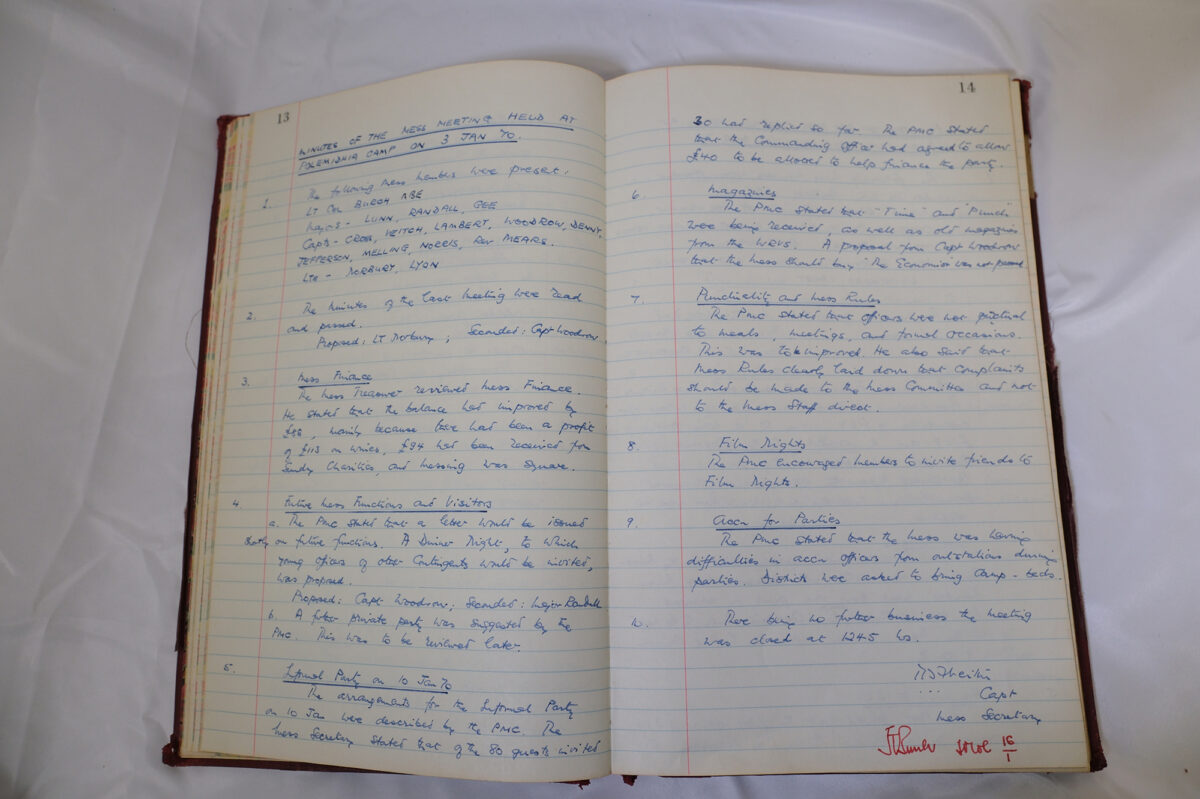 13
MINUTES OF THE MESS MEETING HELD AT
POLEMIDHIA CAMP ON 3 JAN 70.
1. The following mess members were present:
LT Col BURCH, MBE
Majors - LUNN, RANDALL, GEE
Capts - CROSS, VEITCH, LAMBERT, WOODROW, DENNY,
JEFFERSON, MELLING, NORRIS, Rev MEARS.
Lts - NORBURY, LYON
2. The minutes of the last meeting were read
and passed.
Proposed: LT Norbury; Seconded: Capt Woodrow.
3. Mess Finance
The Mess Treasurer reviewed Mess Finance.
He stated that the balance had improved by
, mainly because there had been a profit
of £113 on wines, £94 had been received from
Sundry Charities, and messing was square.
4. Future Mess Functions and Visitors
a. The PMC stated that a letter would be issued
shortly on future functions. A Dinner Night, to which
young officers of other Contingents would be invited,
was proposed.
Proposed: Capt Woodrow; Seconded: Major Randall
b. A further private party was suggested by the
PMC. This was to be reviewed later.
5. Informal Party on 10 Jan 70
The arrangements for the Informal Party
on 10 Jan were described by the PMC. The
Mess Secretary stated that of the 80 guests invited
14
30 had replied so far. The PMC stated
that the Commanding Officer had agreed to allow
£40 to be allowed to help finance the party.
6. Magazines
The PMC stated that "Time" and "Punch"
were being received, as well as old magazines
from the WRVS. A proposal from Capt Woodrow
that the Mess should buy "The Economist" was not passed.
7. Punctuality and Mess Rules
The PMC stated that officers were not punctual
to meals, meetings, and formal occasions.
This was to be improved. He also said that
Mess Rules clearly laid down that complaints
should be made to the Mess Committee and not
to the Mess Staff direct.
8. Film Nights
The PMC encouraged members to invite friends to
Film Nights.
9. Accn for Parties
The PMC stated that the Mess was having
difficulties in accn officers from outstations during
parties. Districts were asked to bring camp-beds.
10. There being no further business the meeting
was closed at 1245 hrs.
Capt
Mess Secretary
16
1